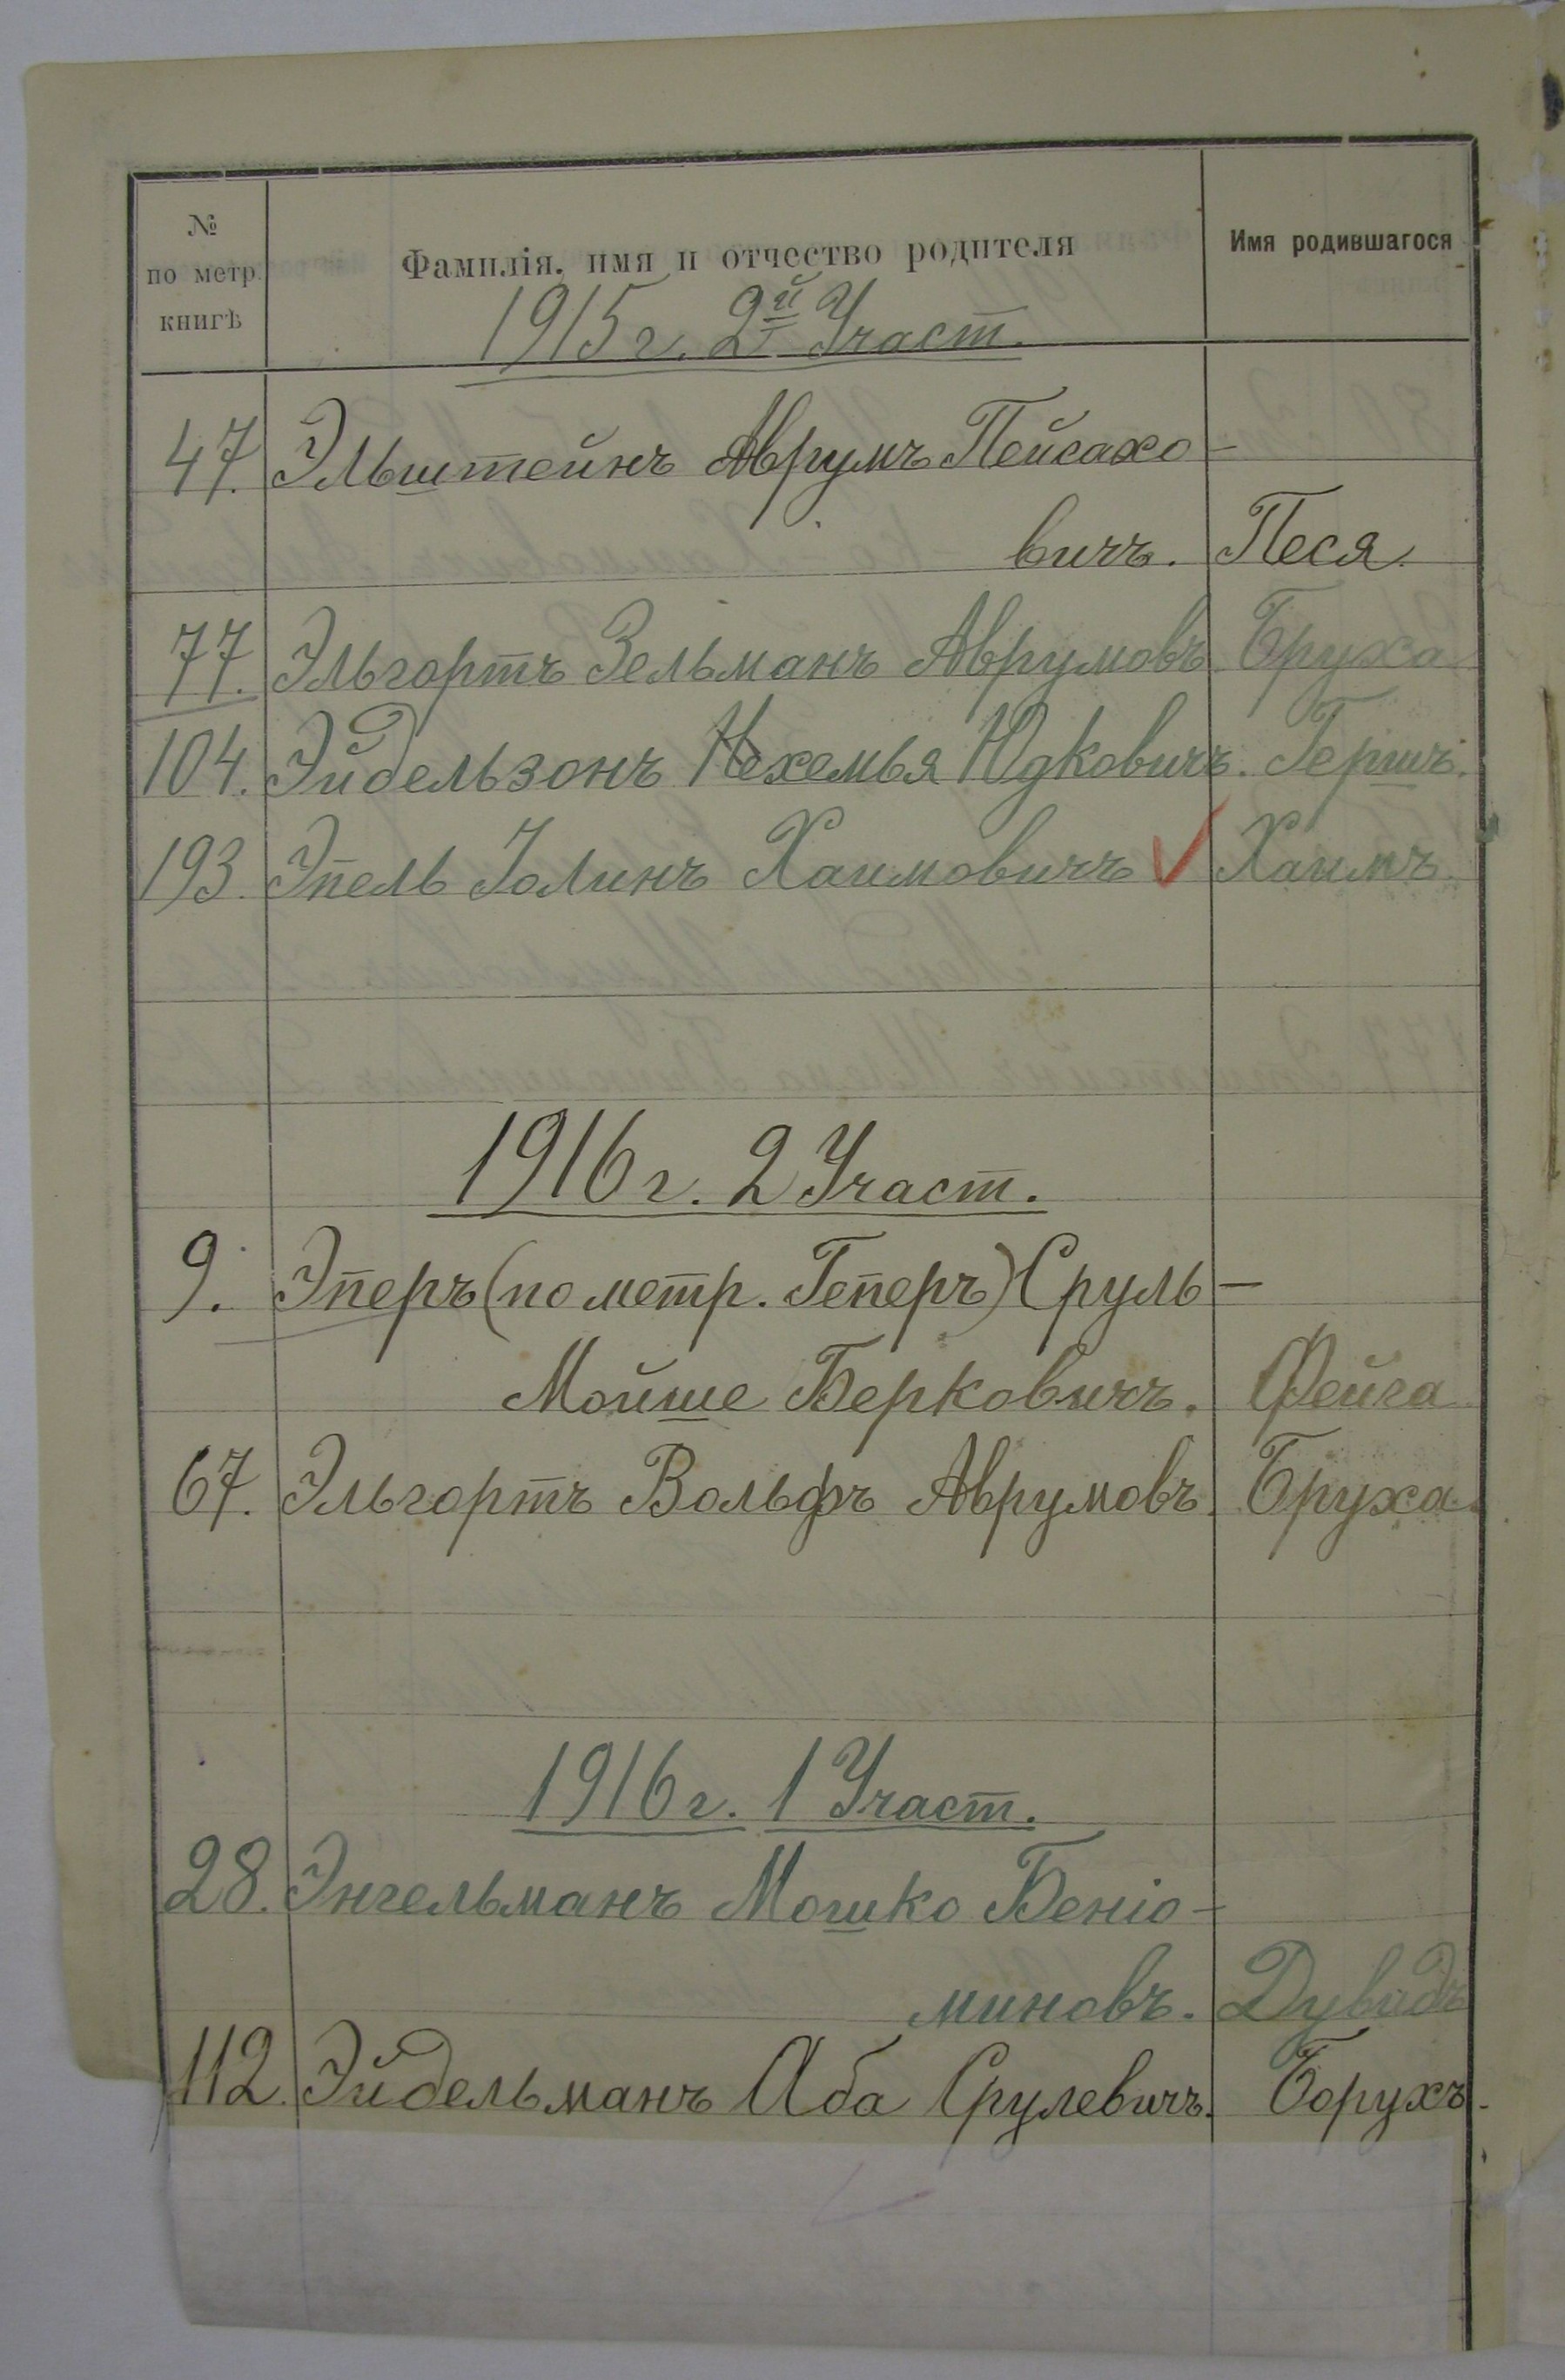 № по метр. книгѣ Фамилія, имя и отчество родителя Имя родившагося
1915 г. 2й Участ.
47. Эльштейнъ Аврумъ Пейсахо-
вичъ. Песя.
77. Эльгортъ Зельманъ Аврумовъ Бруха
104. Эйдельзонъ Нехемья Юдковичъ. Гершъ.
193. Эпель Іолинъ Хаимовичъ Хаимъ.
1916 г. 2 Участ.
9. Эперъ (по метр. Геперъ) Сруль-
Мойше Берковичъ. Фейга
67. Эльгортъ Вольфъ Аврумовъ. Бруха.
1916 г. 1 Участ.
28. Энгельманъ Мошко Беніо-
миновъ. Дувидъ
112. Эйдельманъ Аба Срулевичъ. Борухъ.